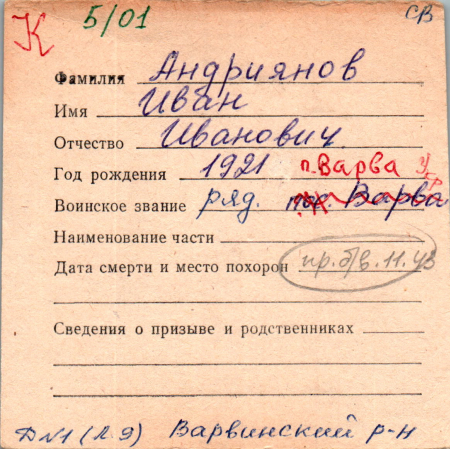 К 5/01 СВ
Фамилия Андриянов
Имя Иван
Отчество Иванович.
Год рождения 1921 п. Варва
Воинское звание ряд. Варва
Наименование части
Дата смерти и место похорон пр. б/в. 11.43
Сведения о призыве и родственниках
Д№1 (л.9) Варвинский р-н